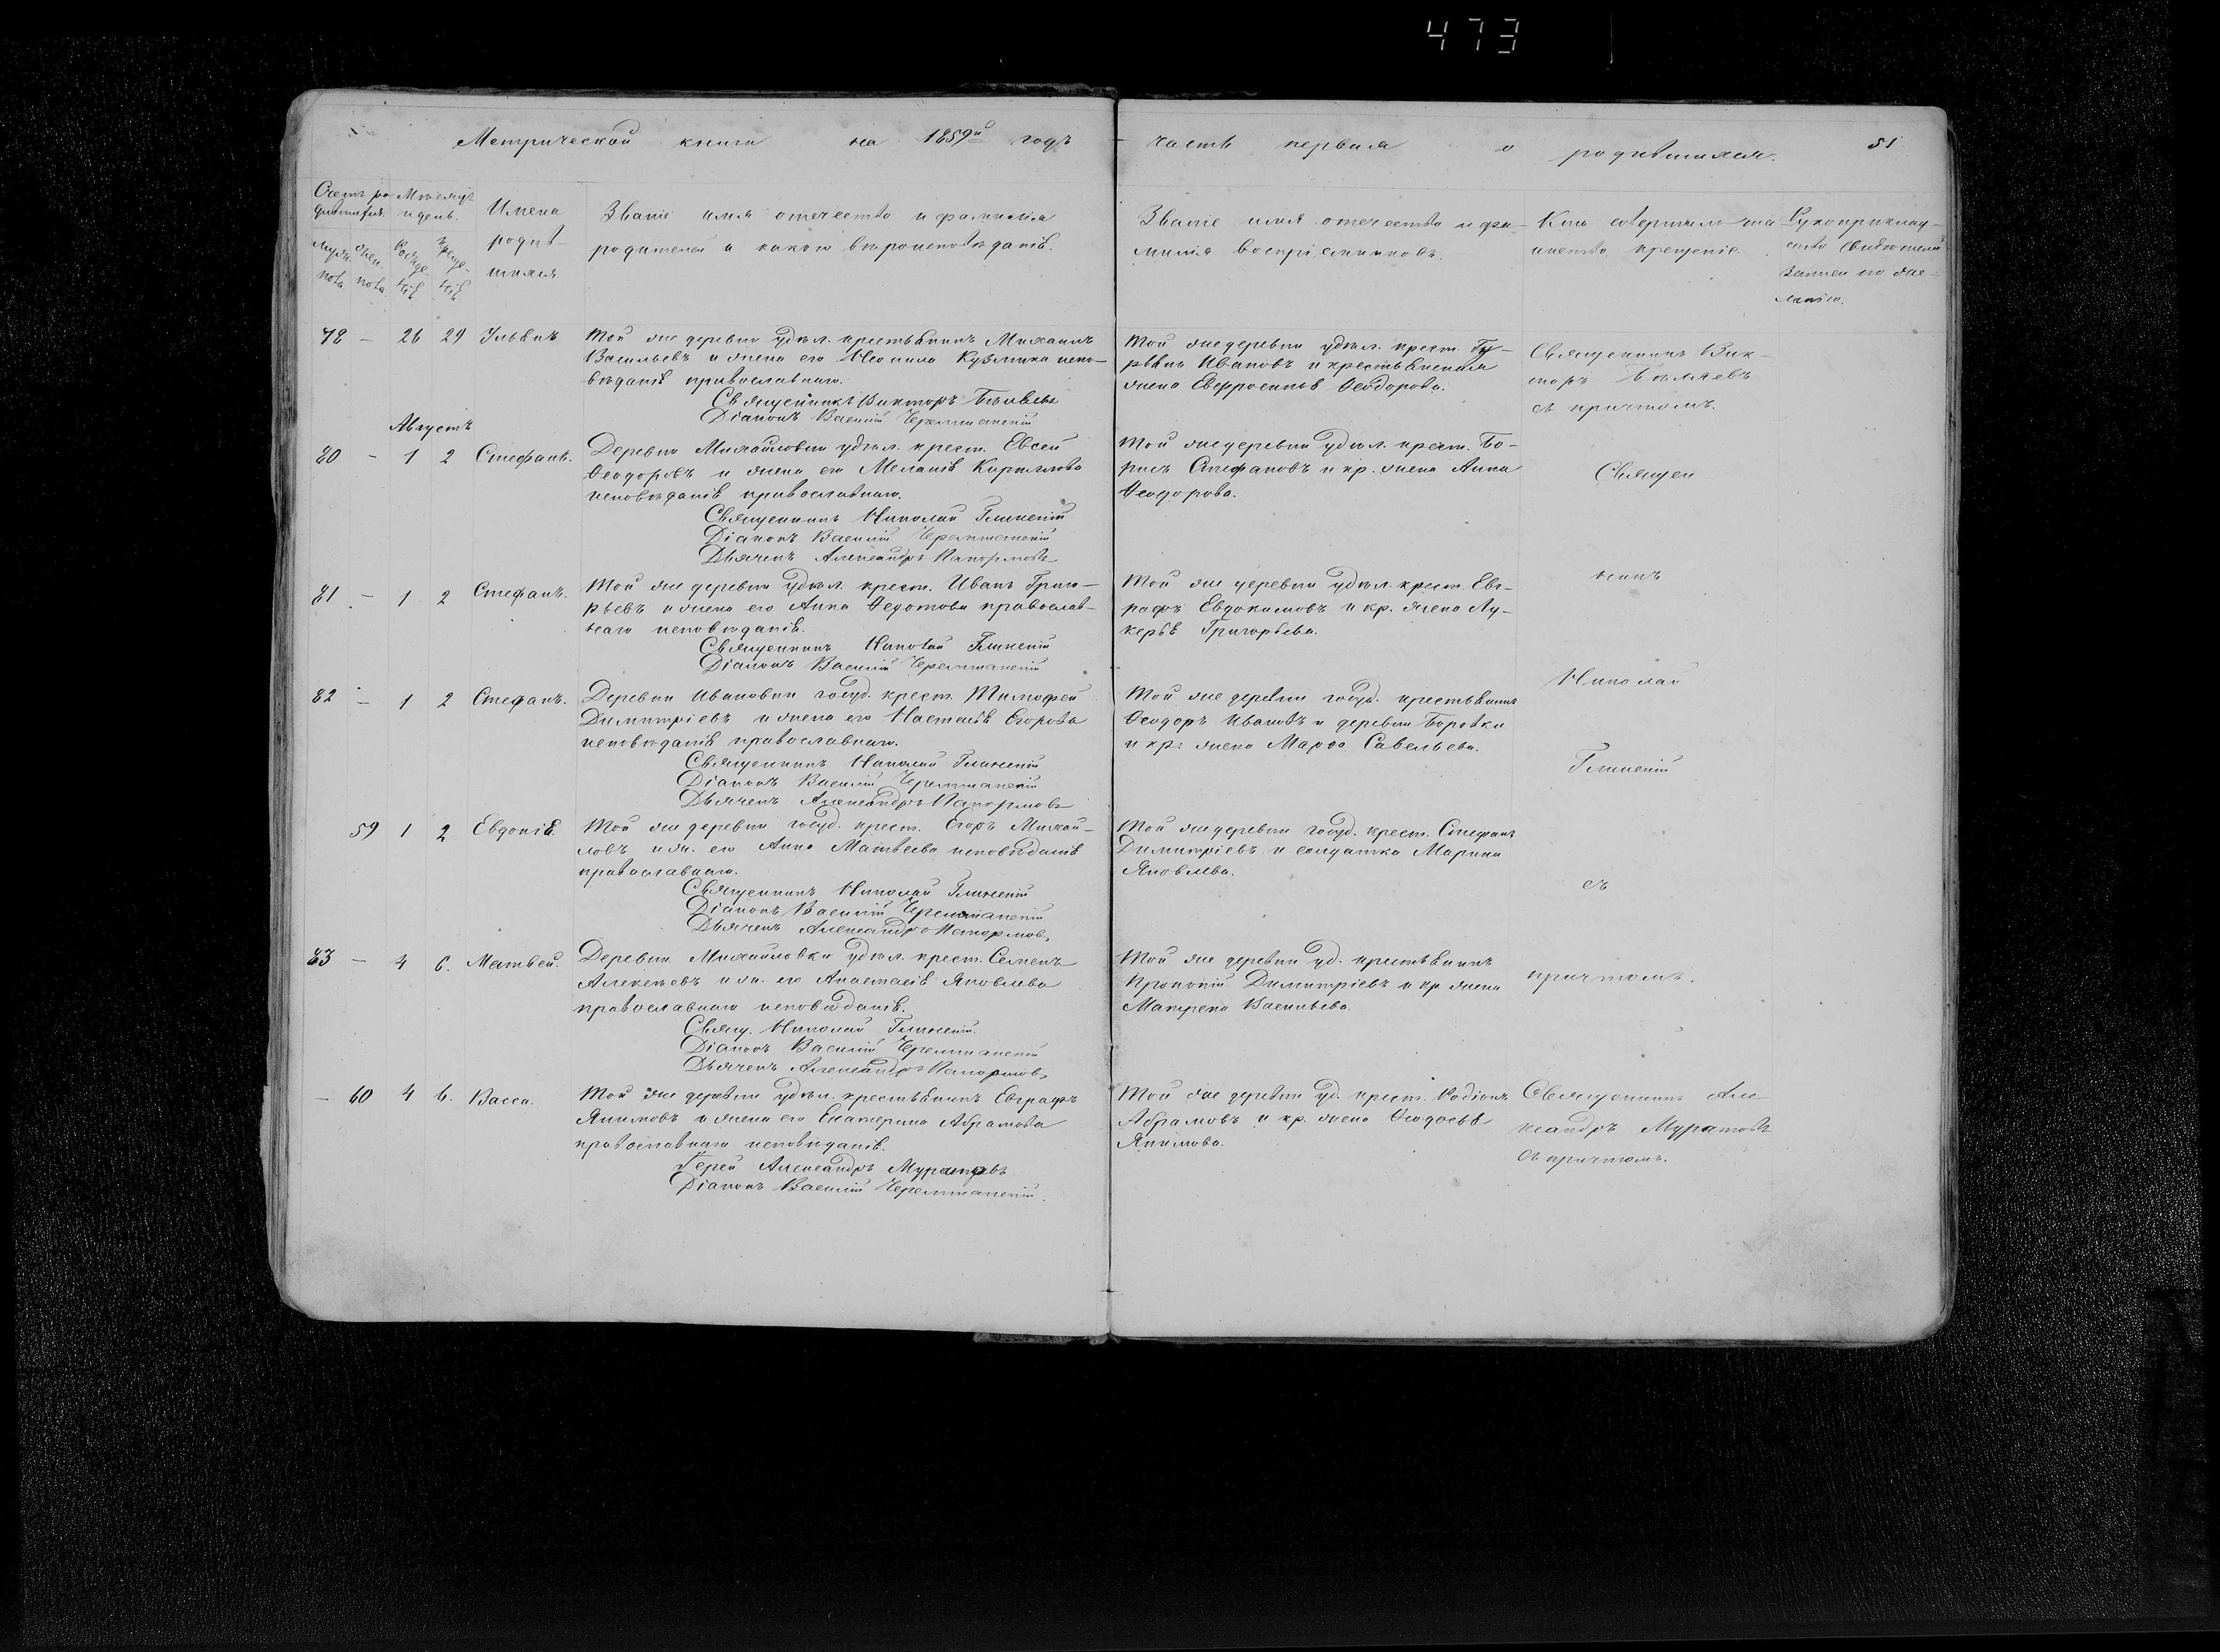 473
Метрической книги на 1859й годъ
часть первая о родившихся. 51
Счетъ ро- Мѣсяцъ
дившихъ. и день.
муж. жен. Рожде- Креще-
пола пола нія нія
Имена
родив-
шихся
Званіе имя отечество и фамилія
родителей и какого вѣроисповѣданія.
Званіе имя отечество и фа-
милія воспріемниковъ.
Кто совершилъ та-
инство крещенія.
Рукоприклад-
ство свидѣтелей
записи по же-
ланію.
78 – 26 29 Ульянъ
Той же деревни удѣл. крестьянинъ Михаилъ
Васильевъ и жена его Неонила Кузмина испо-
вѣданія православнаго.
Священникъ Викторъ Бѣляевъ
Діаконъ Василій Черемшанскій
Той же деревни удѣл. крест. Гу-
рьянъ Ивановъ и крестьянская
жена Евфросинья Ѳеодорова.
Священникъ Вик-
торъ Бѣляевъ
съ причтомъ.
Августъ
80 – 1 2 Стефанъ.
Деревни Михайловки удѣл. крест. Евсей
Ѳеодоровъ и жена его Меланія Кириллова
исповѣданія православнаго.
Священникъ Николай Глинскій
Діаконъ Василій Черемшанскій
Дьячекъ Александръ Папормовъ
Той же деревни удѣл. крест. Бо-
рисъ Стефановъ и кр. жена Анна
Ѳеодорова.
Священ-
81 – 1 2 Стефанъ.
Той же деревни удѣл. крест. Иванъ Григо-
рьевъ и жена его Анна Ѳедотова православ-
наго исповѣданія.
Священникъ Николай Глинскій
Діаконъ Василій Черемшанскій
Той же деревни удѣл. крест. Ев-
графъ Евдокимовъ и кр. жена Лу-
керья Григорьева.
никъ
82 – 1 2 Стефанъ.
Деревни Ивановки госуд. крест. Тимофей
Димитріевъ и жена его Настасія Егорова
исповѣданія православнаго.
Священникъ Николай Глинскій
Діаконъ Василій Черемшанскій
Дьячекъ Александръ Папормовъ
Той же деревни госуд. крестьянинъ
Ѳеодоръ Ивановъ и деревни Боровки
и кр. жена Марѳа Савельева.
Николай
Глинскій
59 1 2 Евдокія.
Той же деревни госуд. крест. Егоръ Михай-
ловъ и ж. его Анна Матвеева исповѣданія
православнаго.
Священникъ Николай Глинскій
Діаконъ Василій Черемшанскій
Дьячекъ Александръ Папормовъ
Той же деревни госуд. крест. Стефанъ
Димитріевъ и солдатка Марина
Яковлева.
съ
83 – 4 6. Матвей.
Деревни Михайловки удѣл. крест. Семенъ
Алексѣевъ и ж. его Анастасія Яковлева
православнаго исповѣданія.
Свящ. Николай Глинскій.
Діаконъ Василій Черемшанскій
Дьячекъ Александръ Папормовъ
Той же деревни уд. крестьянинъ
Прокопій Димитріевъ и кр жена
Матрена Васильева.
причтомъ.
– 60 4 6. Васса.
Той же деревни удѣл. крестьянинъ Евграфъ
Якимовъ и жена его Екатерина Абрамова
православнаго исповѣданія.
Іерей Александръ Муратовъ
Діаконъ Василій Черемшанскій.
Той же деревни уд. крест. Родіонъ
Абрамовъ и кр. жена Ѳеодосья
Якимова.
Священникъ Але-
ксандръ Муратовъ
съ причтомъ.